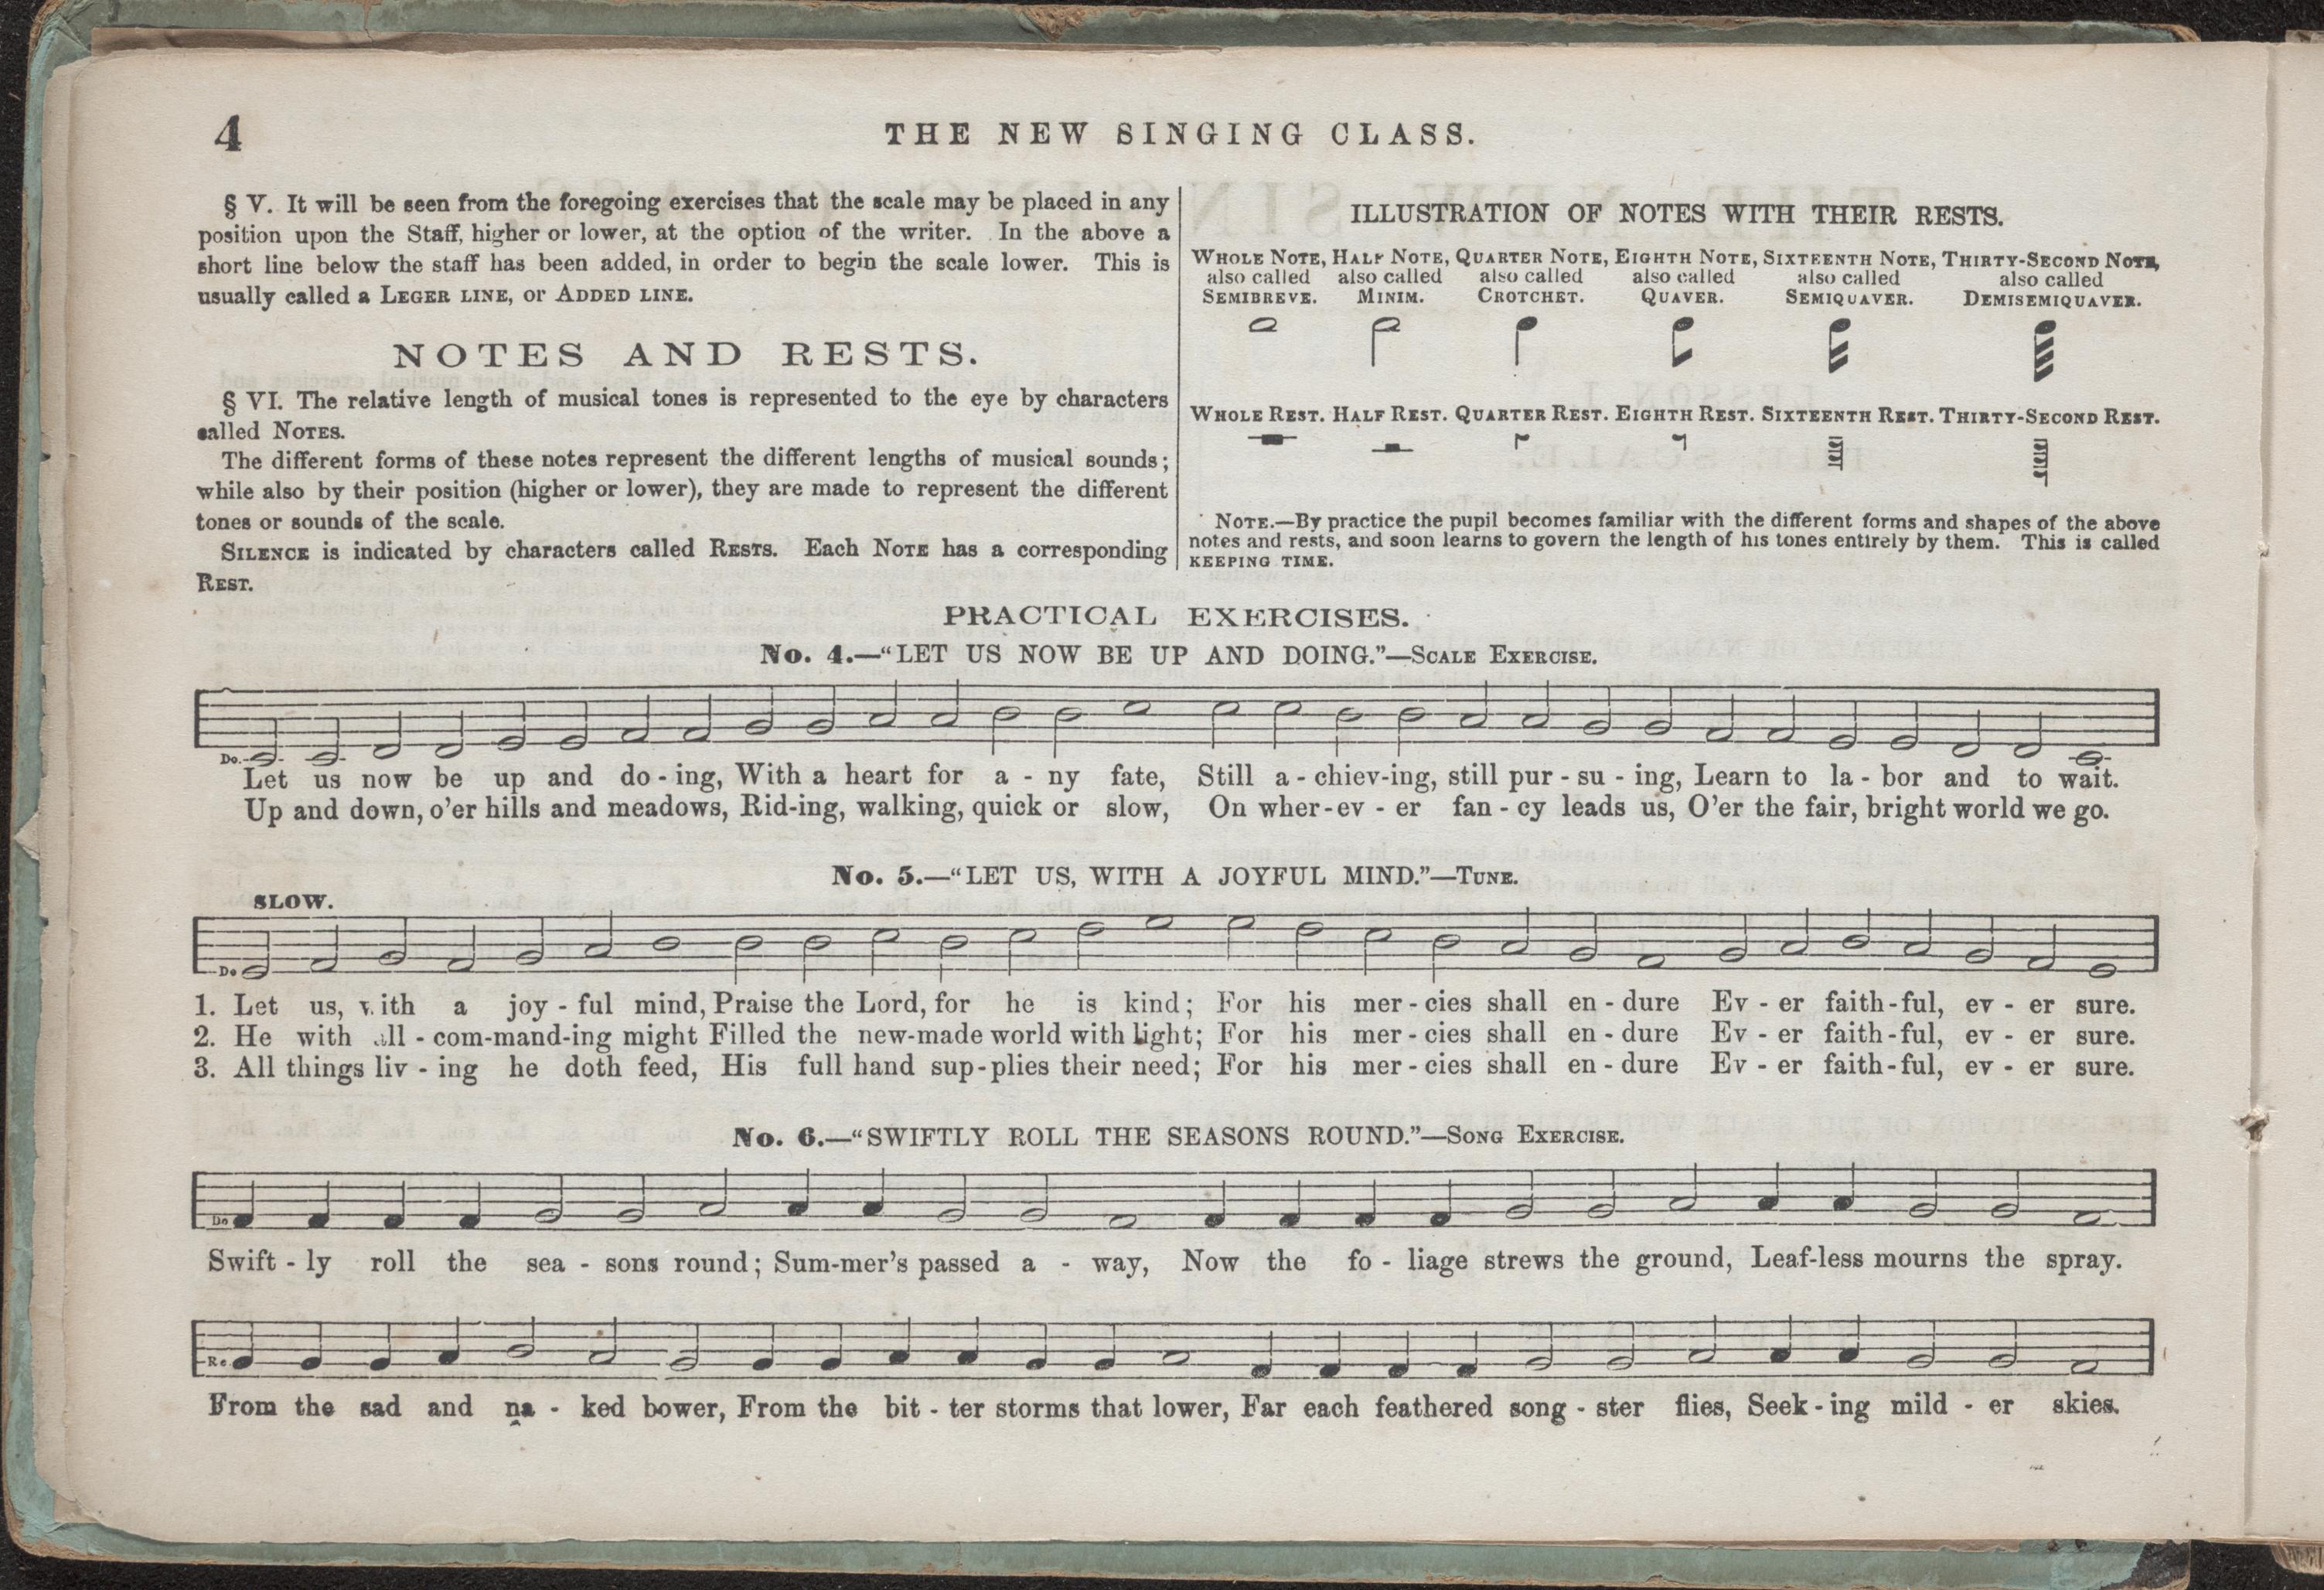 4
THE NEW SINGING CLASS.
§ V. It will be seen from the foregoing exercises that the scale may be placed in any
position upon the Staff, higher or lower, at the option of the writer. In the above a
short line below the staff has been added, in order to begin the scale lower. This is
usually called a LEGER LINE, or ADDED LINE.
NOTES AND RESTS.
§ VI. The relative length of musical tones is represented to the eye by characters
called NOTES.
The different forms of these notes represent the different lengths of musical sounds;
while also by their position (higher or lower), they are made to represent the different
tones or sounds of the scale.
SILENCE is indicated by characters called RESTS. Each NOTE has a corresponding
REST.
ILLUSTRATION OF NOTES WITH THEIR RESTS.
WHOLE NOTE, HALF NOTE, QUARTER NOTE, EIGHTH NOTE, SIXTEENTH NOTE, THIRTY-SECOND NOTE,
also called also called also called also called also called also called
SEMIBREVE. MINIM. CROTCHET. QUAVER. SEMIQUAVER. DEMISEMIQUAVER.
WHOLE REST. HALF REST. QUARTER REST. EIGHTH REST. SIXTEENTH REST. THIRTY-SECOND REST.
NOTE.—By practice the pupil becomes familiar with the different forms and shapes of the above
notes and rests, and soon learns to govern the length of his tones entirely by them. This is called
KEEPING TIME.
PRACTICAL EXERCISES.
No. 4.—“LET US NOW BE UP AND DOING.”—SCALE EXERCISE.
Do.
Let us now be up and do - ing, With a heart for a - ny fate, Still a - chiev-ing, still pur - su - ing, Learn to la - bor and to wait.
Up and down, o’er hills and meadows, Rid-ing, walking, quick or slow, On wher-ev - er fan - cy leads us, O’er the fair, bright world we go.
No. 5.—“LET US, WITH A JOYFUL MIND.”—TUNE.
SLOW.
Do
1. Let us, with a joy - ful mind, Praise the Lord, for he is kind; For his mer - cies shall en - dure Ev - er faith - ful, ev - er sure.
2. He with all - com-mand-ing might Filled the new-made world with light; For his mer - cies shall en - dure Ev - er faith - ful, ev - er sure.
3. All things liv - ing he doth feed, His full hand sup-plies their need; For his mer - cies shall en - dure Ev - er faith - ful, ev - er sure.
No. 6.—“SWIFTLY ROLL THE SEASONS ROUND.”—SONG EXERCISE.
Do
Swift - ly roll the sea - sons round; Sum-mer’s passed a - way, Now the fo - liage strews the ground, Leaf-less mourns the spray.
Re
From the sad and na - ked bower, From the bit - ter storms that lower, Far each feathered song - ster flies, Seek - ing mild - er skies.